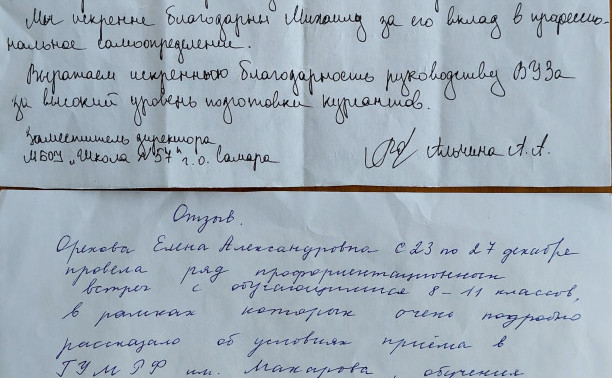 Мы искренне благодарны Михаилу за его вклад в професси-
нальное самоопределение.
Выражаем искреннюю благодарность руководству ВУЗа
за высокий уровень подготовки курсантов.
Заместитель директора
МБОУ "Школа №57" г.о. Самара
Альчина А.А.
Отзыв.
Орехова Елена Александровна с 23 по 27 декабря
провела ряд профориентационных
встреч с обучающимися 8-11 классов,
в рамках которых очень подробно
рассказала об условиях приёма в
ГУМРФ им. Макарова, обучения